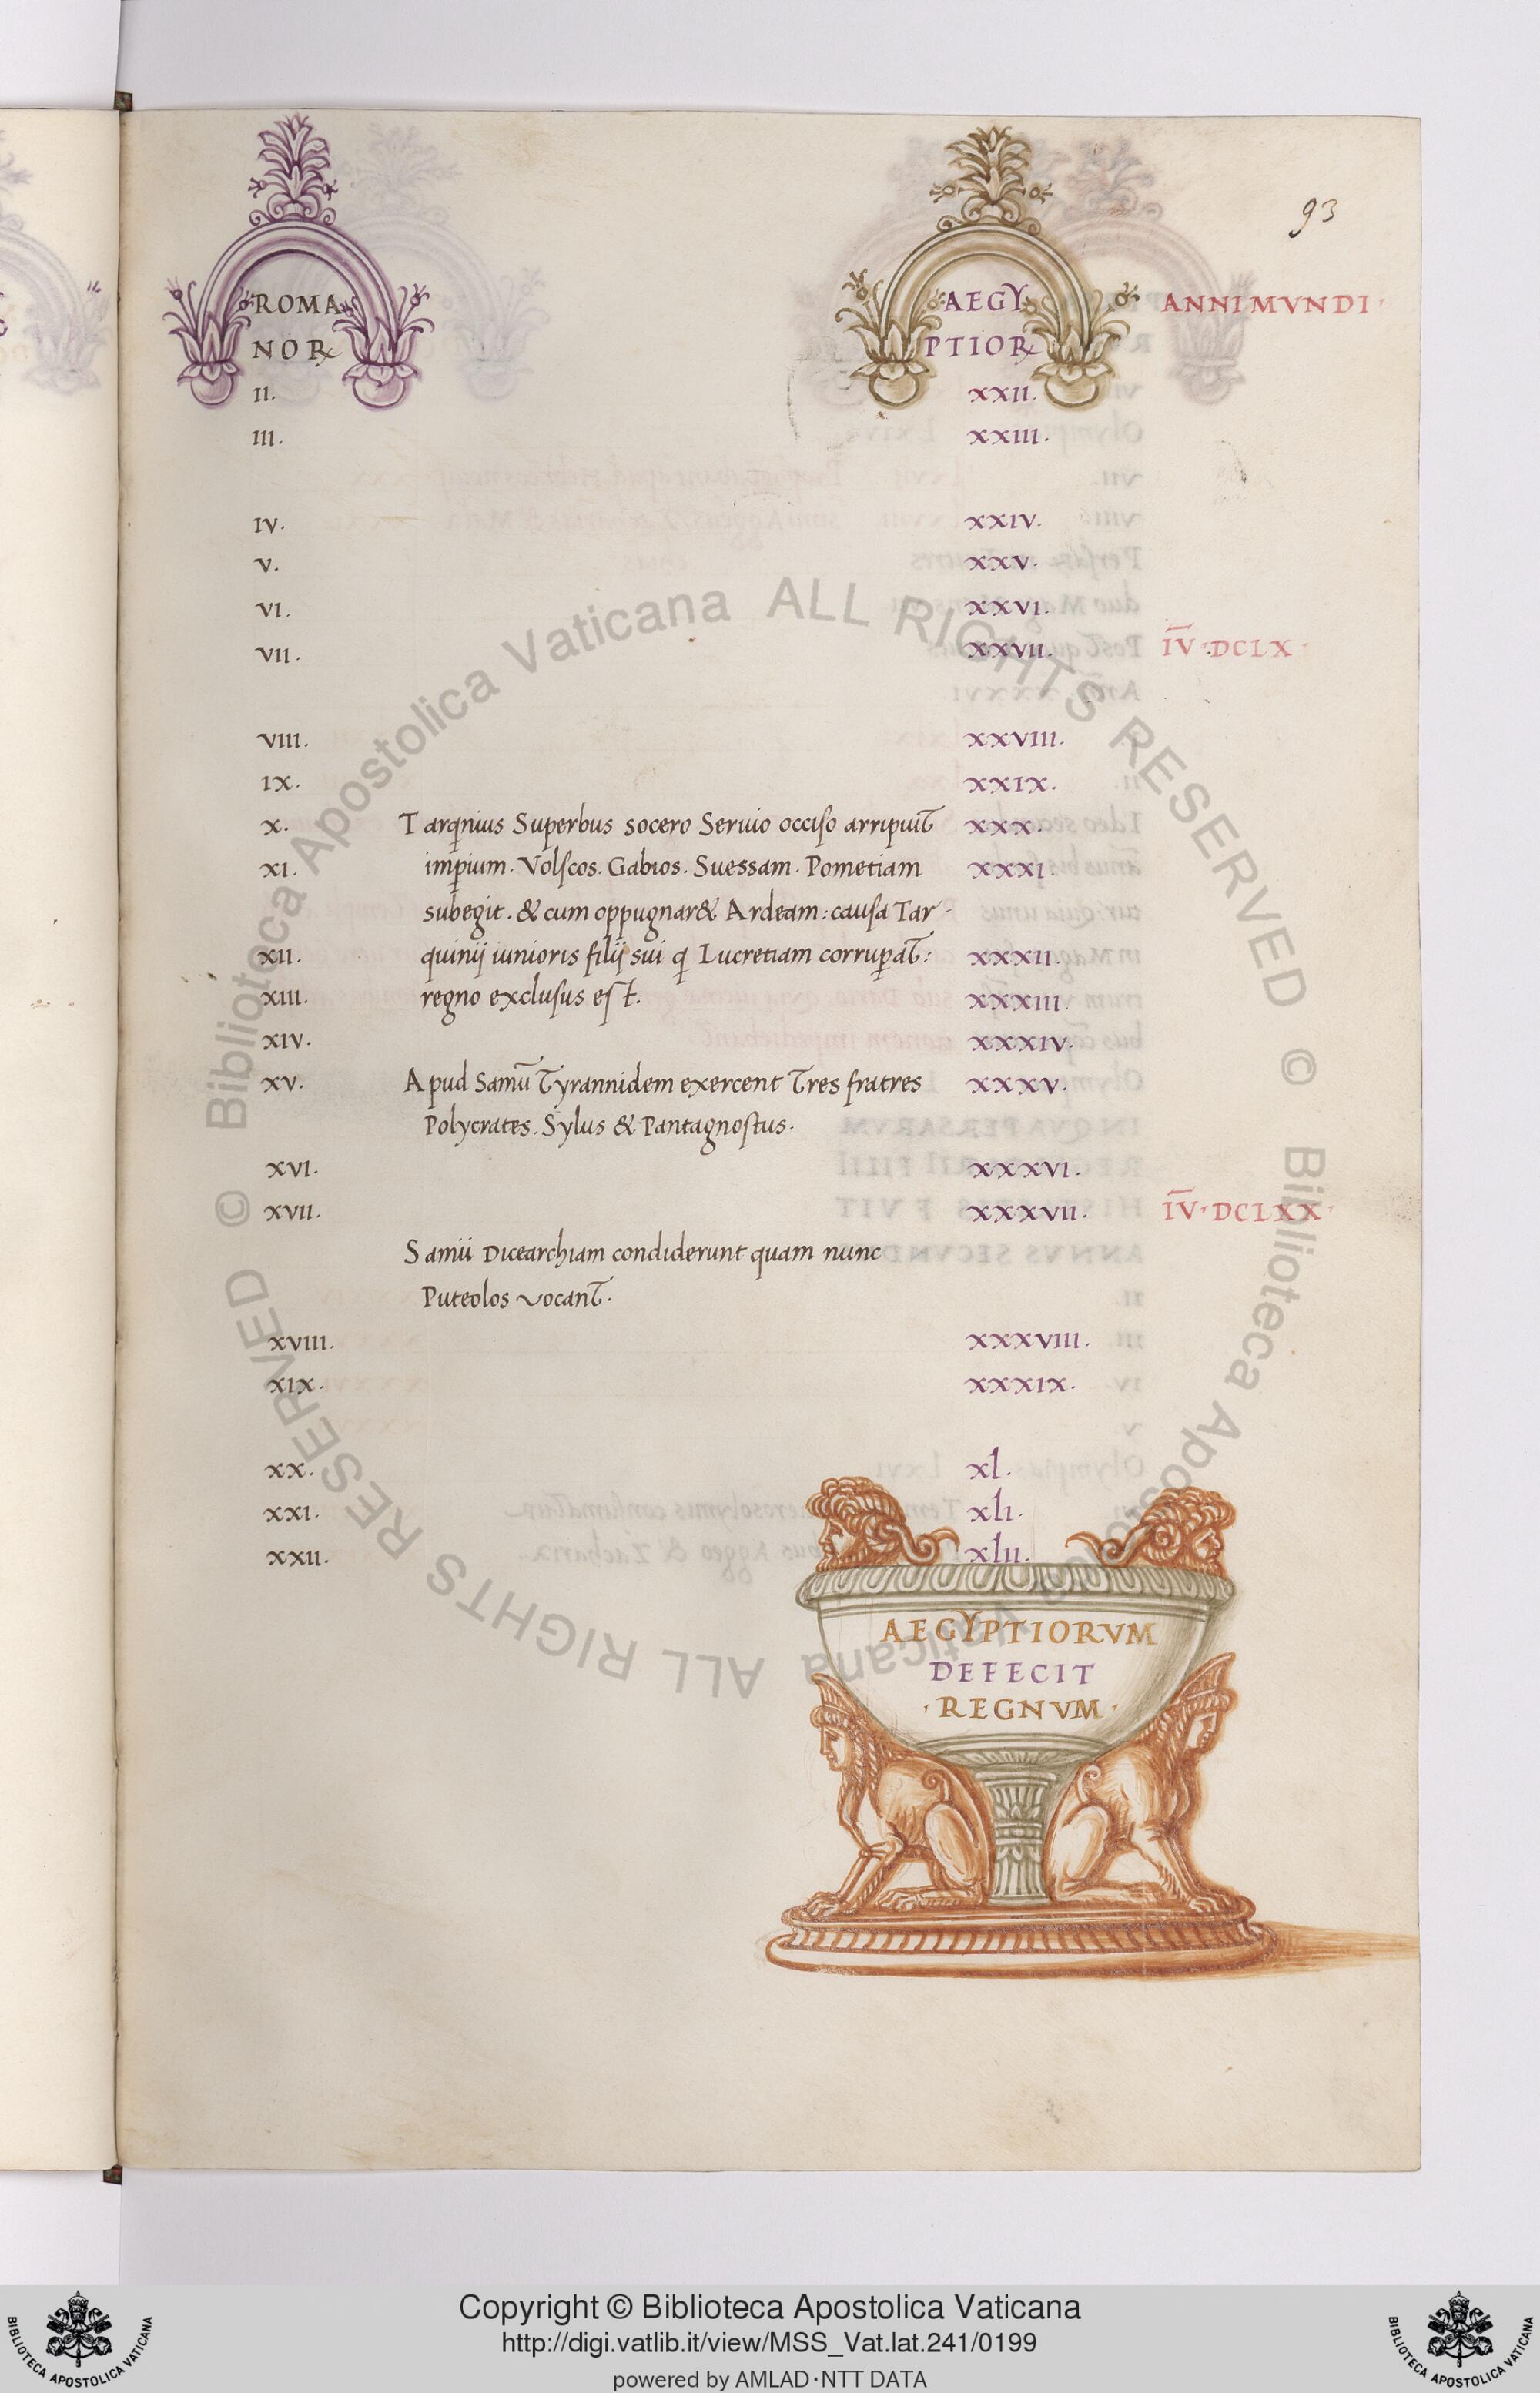 93
ROMA AEGY ANNI MVNDI
NOR PTIOR
II. XXII.
III. XXIII.
IV. XXIV.
V. XXV.
VI. XXVI.
VII. XXVII. I͞V·DCLX·
VIII. XXVIII.
IX. XXIX.
X. Tarqnius Superbus socero Seruio occiso arripuit XXX.
XI. impium. Volscos. Gabios. Suessam. Pometiam XXXI.
subegit. & cum oppugnar& Ardeam: causa Tar-
XII. quinij iunioris filij sui q Lucretiam corrupat: XXXII.
XIII. regno exclusus est. XXXIII.
XIV. XXXIV.
XV. Apud Samū Tyrannidem exercent Tres fratres XXXV.
Polycrates. Sylus & Pantagnostus.
XVI. XXXVI.
XVII. XXXVII. I͞V·DCLXX·
Samii Dicearchiam condiderunt quam nunc
Puteolos vocant.
XVIII. XXXVIII.
XIX. XXXIX.
XX. xl.
XXI. xli.
XXII. xlii.
AEGYPTIORVM
DEFECIT
·REGNVM·
© Biblioteca Apostolica Vaticana ALL RIGHTS RESERVED
© Biblioteca Apostolica Vaticana ALL RIGHTS RESERVED
Copyright © Biblioteca Apostolica Vaticana
http://digi.vatlib.it/view/MSS_Vat.lat.241/0199
powered by AMLAD·NTT DATA
BIBLIOTECA APOSTOLICA VATICANA
BIBLIOTECA APOSTOLICA VATICANA